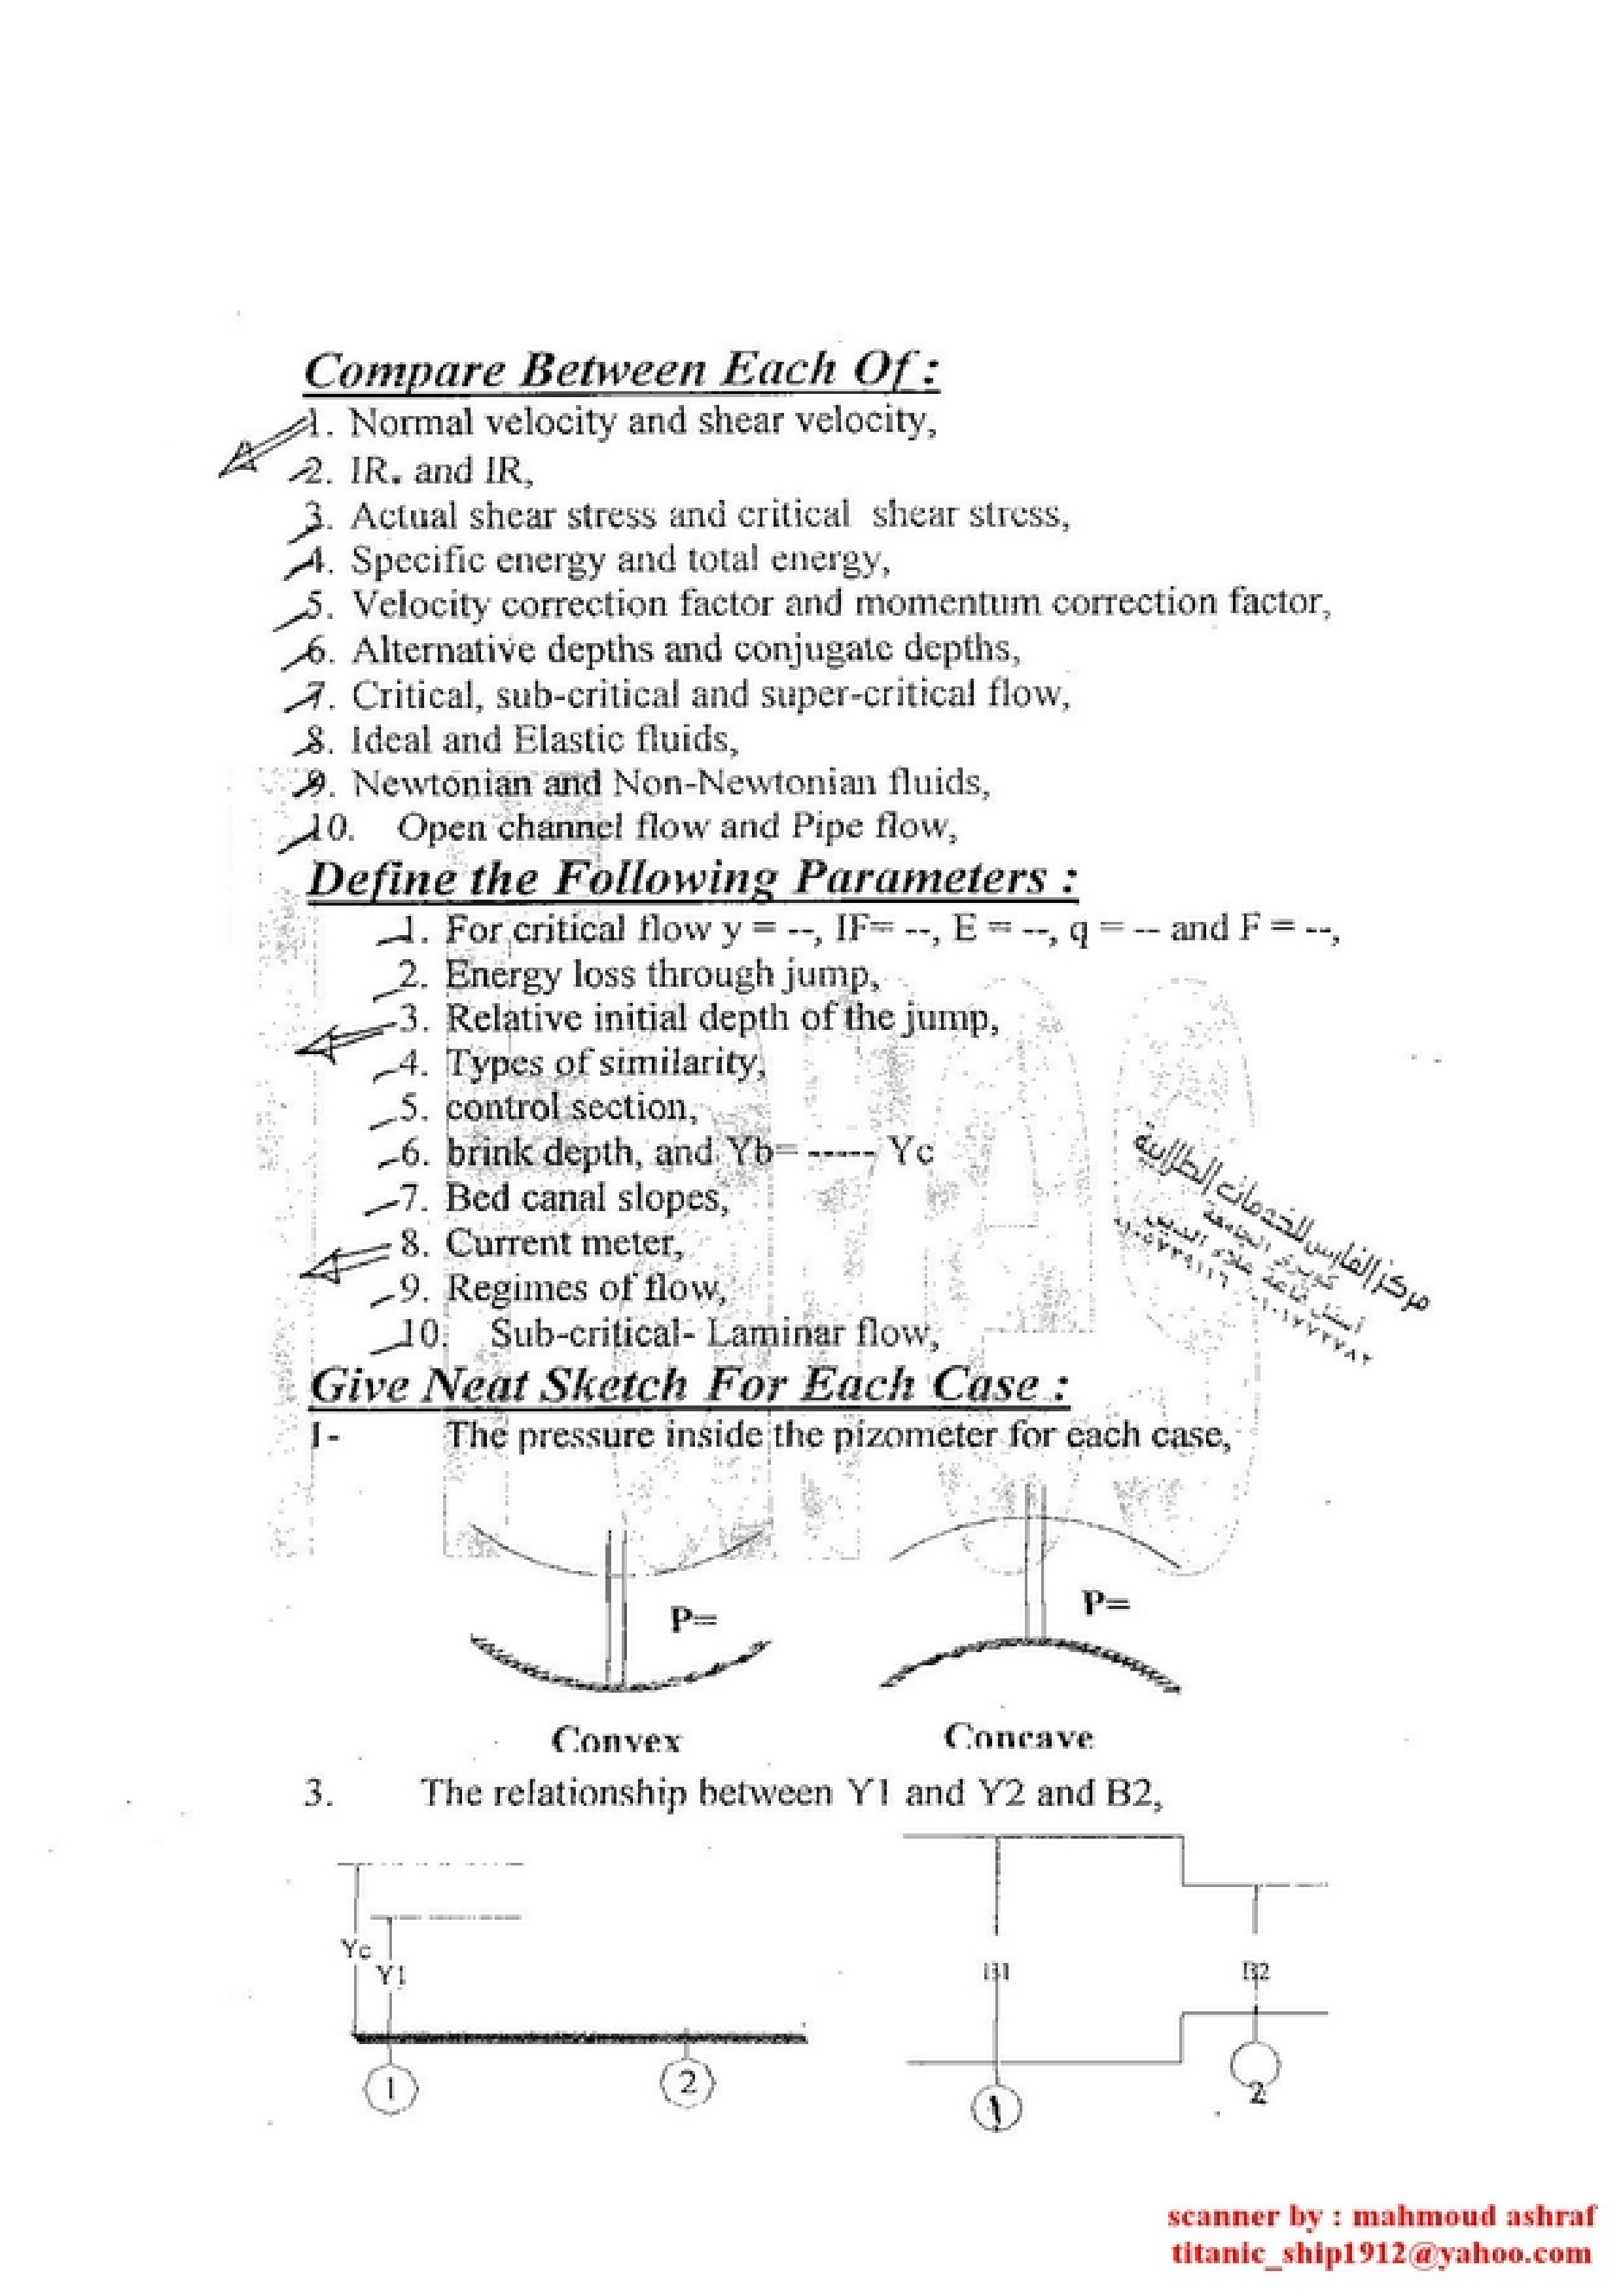 Compare Between Each Of :
1. Normal velocity and shear velocity,
2. IR* and IR,
3. Actual shear stress and critical shear stress,
4. Specific energy and total energy,
5. Velocity correction factor and momentum correction factor,
6. Alternative depths and conjugate depths,
7. Critical, sub-critical and super-critical flow,
8. Ideal and Elastic fluids,
9. Newtonian and Non-Newtonian fluids,
10. Open channel flow and Pipe flow,
Define the Following Parameters :
1. For critical flow y = --, IF= --, E = --, q = -- and F = --,
2. Energy loss through jump,
3. Relative initial depth of the jump,
4. Types of similarity,
5. control section,
6. brink depth, and Yb= ----- Yc
7. Bed canal slopes,
8. Current meter,
9. Regimes of flow,
10. Sub-critical- Laminar flow,
مركز الفارس للخدمات الطلابية
Give Neat Sketch For Each Case :
1- The pressure inside the pizometer for each case,
P=
P=
Convex
Concave
3. The relationship between Y1 and Y2 and B2,
Yc
Y1
B1
B2
1
2
1
2
scanner by : mahmoud ashraf
titanic_ship1912@yahoo.com